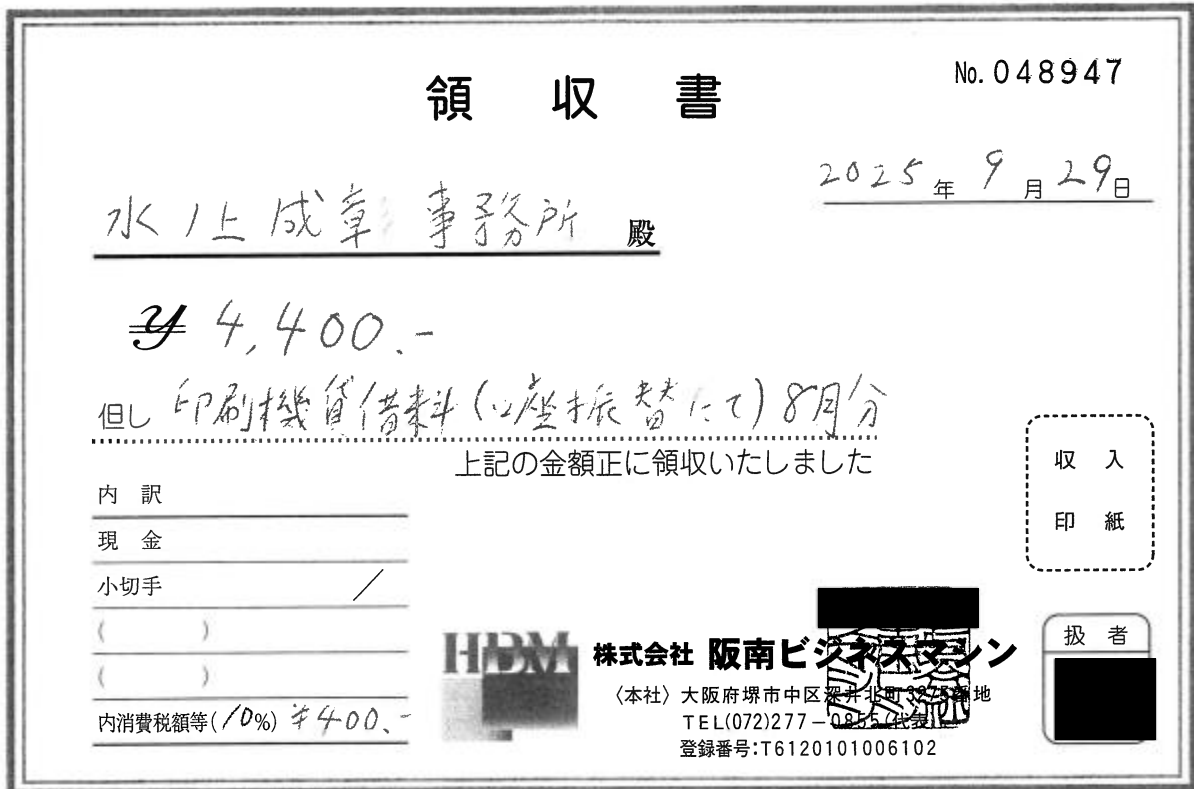 No. 048947
領収書
2025年9月29日
水ノ上成章事務所 殿
¥ 4,400.-
但し 印刷機賃借料(口座振替にて)8月分
上記の金額正に領収いたしました
収入
印紙
内訳
現金
小切手 /
( )
( )
内消費税額等(10%) ¥400.-
HBM
株式会社 阪南ビジネスマシン
〈本社〉大阪府堺市中区深井北町3275番地
TEL(072)277-0855(代表)
登録番号:T6120101006102
扱者